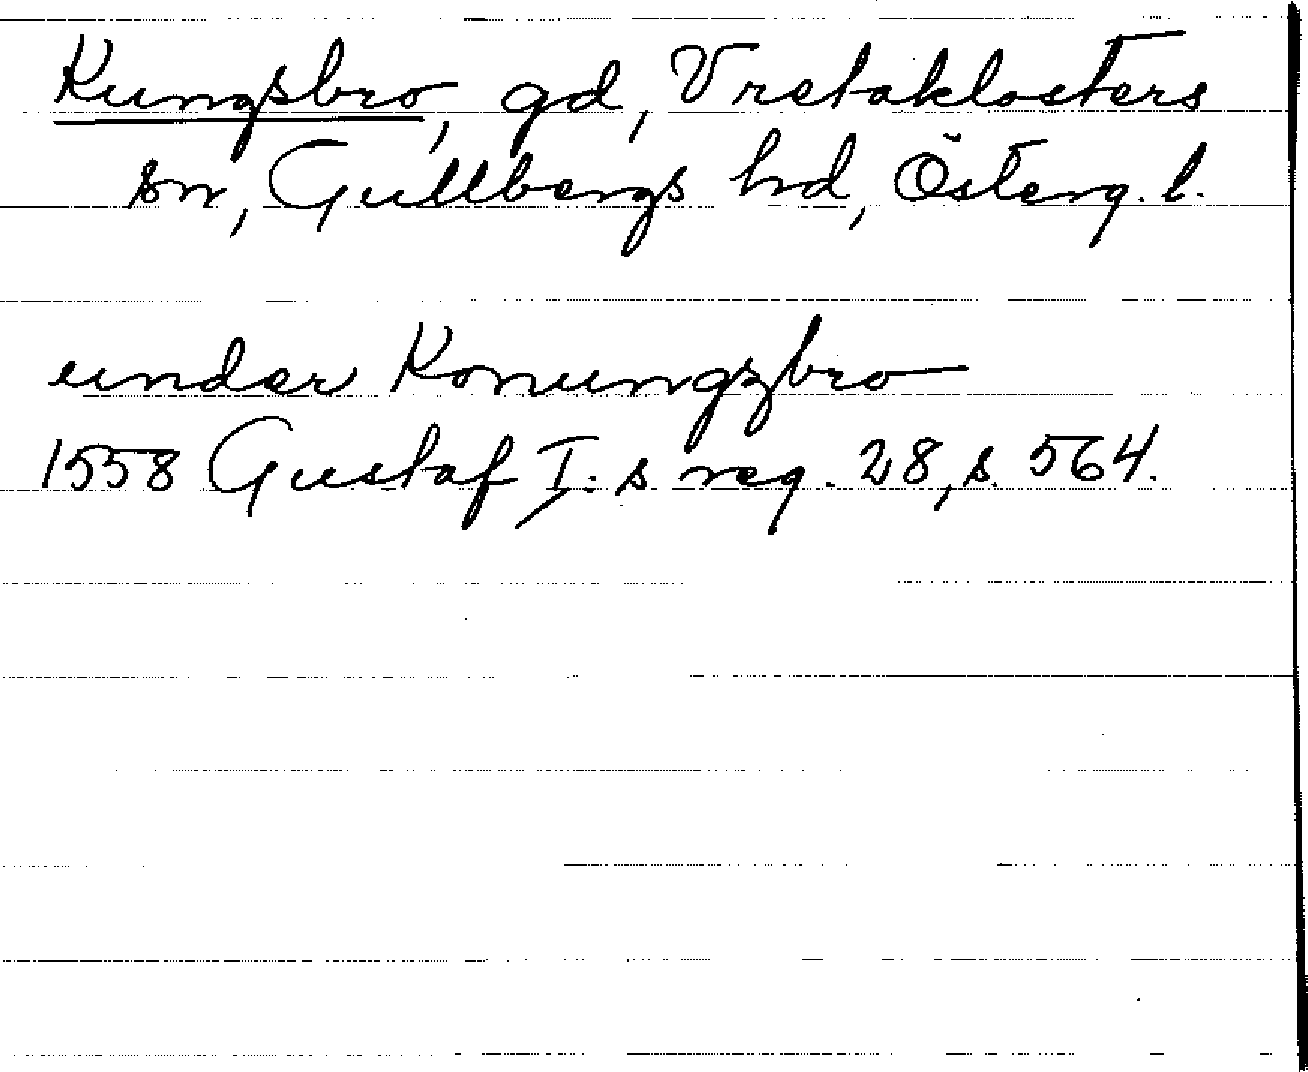 Kungsbro, gd, Vretaklosters
sn, Gullbergs hd, Österg. l.
under Konungzbro
1558 Gustaf I: s reg. 28, s. 564.